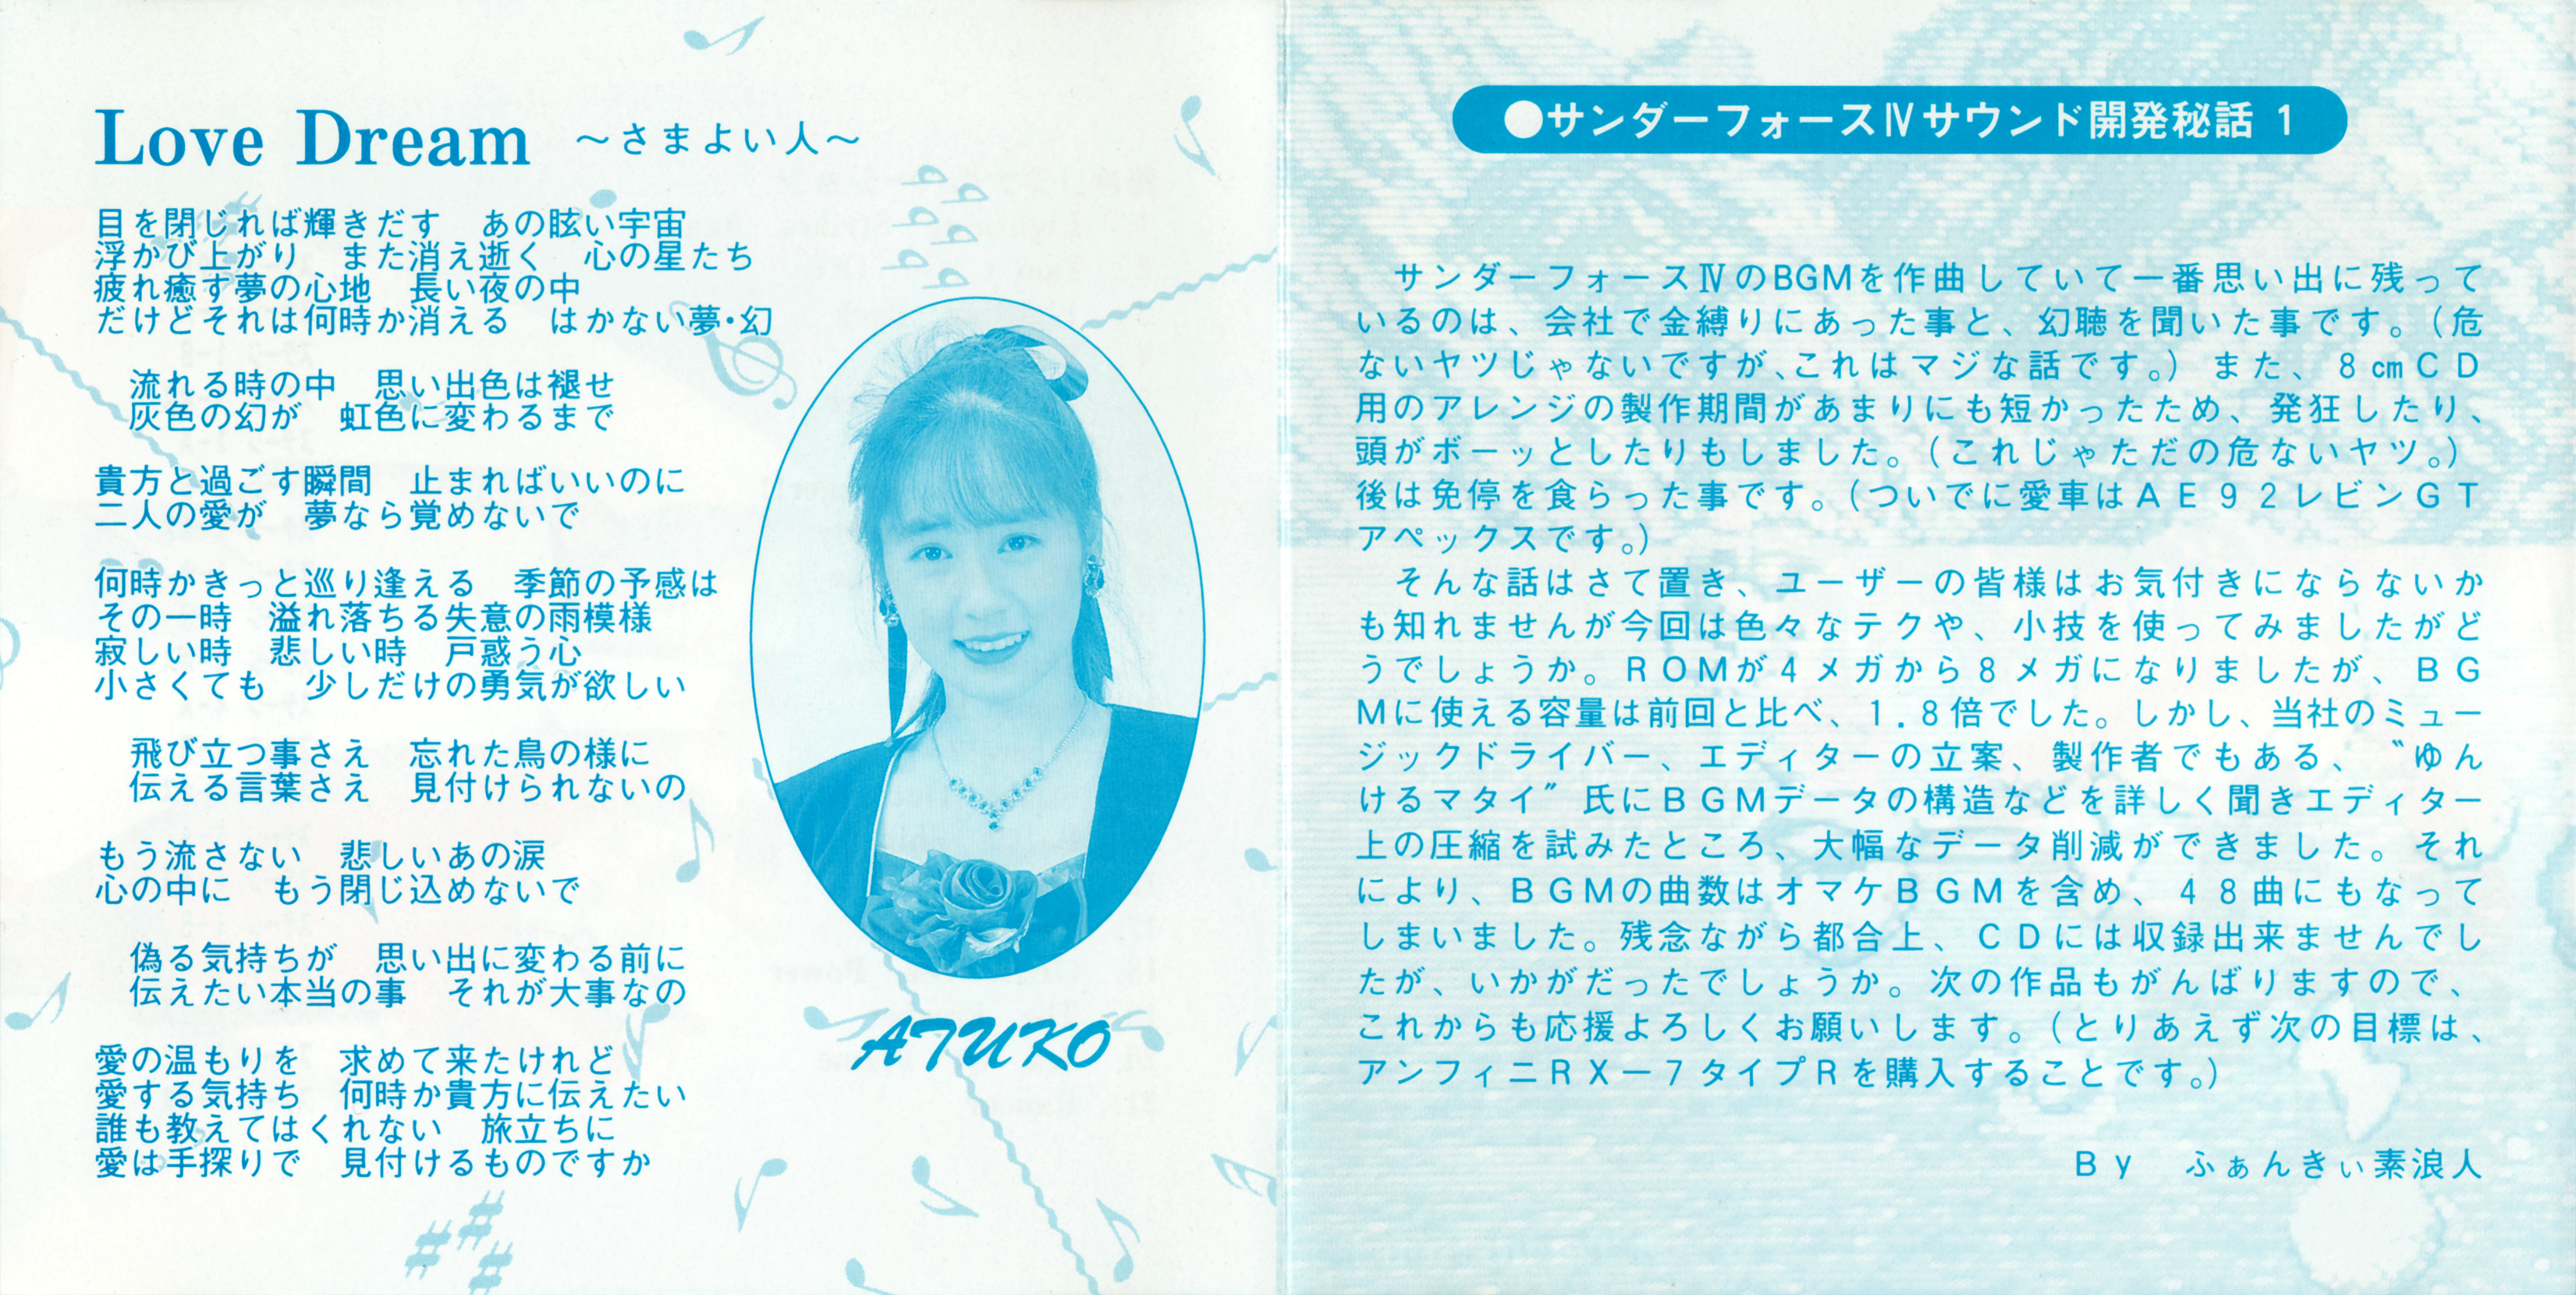 Love Dream ～さまよい人～
目を閉じれば輝きだす　あの眩い宇宙
浮かび上がり　また消え逝く　心の星たち
疲れ癒す夢の心地　長い夜の中
だけどそれは何時か消える　はかない夢・幻
流れる時の中　思い出色は褪せ
灰色の幻が　虹色に変わるまで
貴方と過ごす瞬間　止まればいいのに
二人の愛が　夢なら覚めないで
何時かきっと巡り逢える　季節の予感は
その一時　溢れ落ちる失意の雨模様
寂しい時　悲しい時　戸惑う心
小さくても　少しだけの勇気が欲しい
飛び立つ事さえ　忘れた鳥の様に
伝える言葉さえ　見付けられないの
もう流さない　悲しいあの涙
心の中に　もう閉じ込めないで
偽る気持ちが　思い出に変わる前に
伝えたい本当の事　それが大事なの
愛の温もりを　求めて来たけれど
愛する気持ち　何時か貴方に伝えたい
誰も教えてはくれない　旅立ちに
愛は手探りで　見付けるものですか
ATUKO
●サンダーフォースⅣサウンド開発秘話 1
サンダーフォースⅣのBGMを作曲していて一番思い出に残って
いるのは、会社で金縛りにあった事と、幻聴を聞いた事です。（危
ないヤツじゃないですが、これはマジな話です。）また、8㎝ＣＤ
用のアレンジの製作期間があまりにも短かったため、発狂したり、
頭がボーッとしたりもしました。（これじゃただの危ないヤツ。）
後は免停を食らった事です。（ついでに愛車はＡＥ９２レビンＧＴ
アペックスです。）
そんな話はさて置き、ユーザーの皆様はお気付きにならないか
も知れませんが今回は色々なテクや、小技を使ってみましたがど
うでしょうか。ＲＯＭが４メガから８メガになりましたが、ＢＧ
Ｍに使える容量は前回と比べ、１.８倍でした。しかし、当社のミュー
ジックドライバー、エディターの立案、製作者でもある、〝ゆん
けるマタイ〞氏にＢＧＭデータの構造などを詳しく聞きエディター
上の圧縮を試みたところ、大幅なデータ削減ができました。それ
により、ＢＧＭの曲数はオマケＢＧＭを含め、４８曲にもなって
しまいました。残念ながら都合上、ＣＤには収録出来ませんでし
たが、いかがだったでしょうか。次の作品もがんばりますので、
これからも応援よろしくお願いします。（とりあえず次の目標は、
アンフィニＲＸ－７タイプＲを購入することです。）
Ｂｙ　ふぁんきぃ素浪人